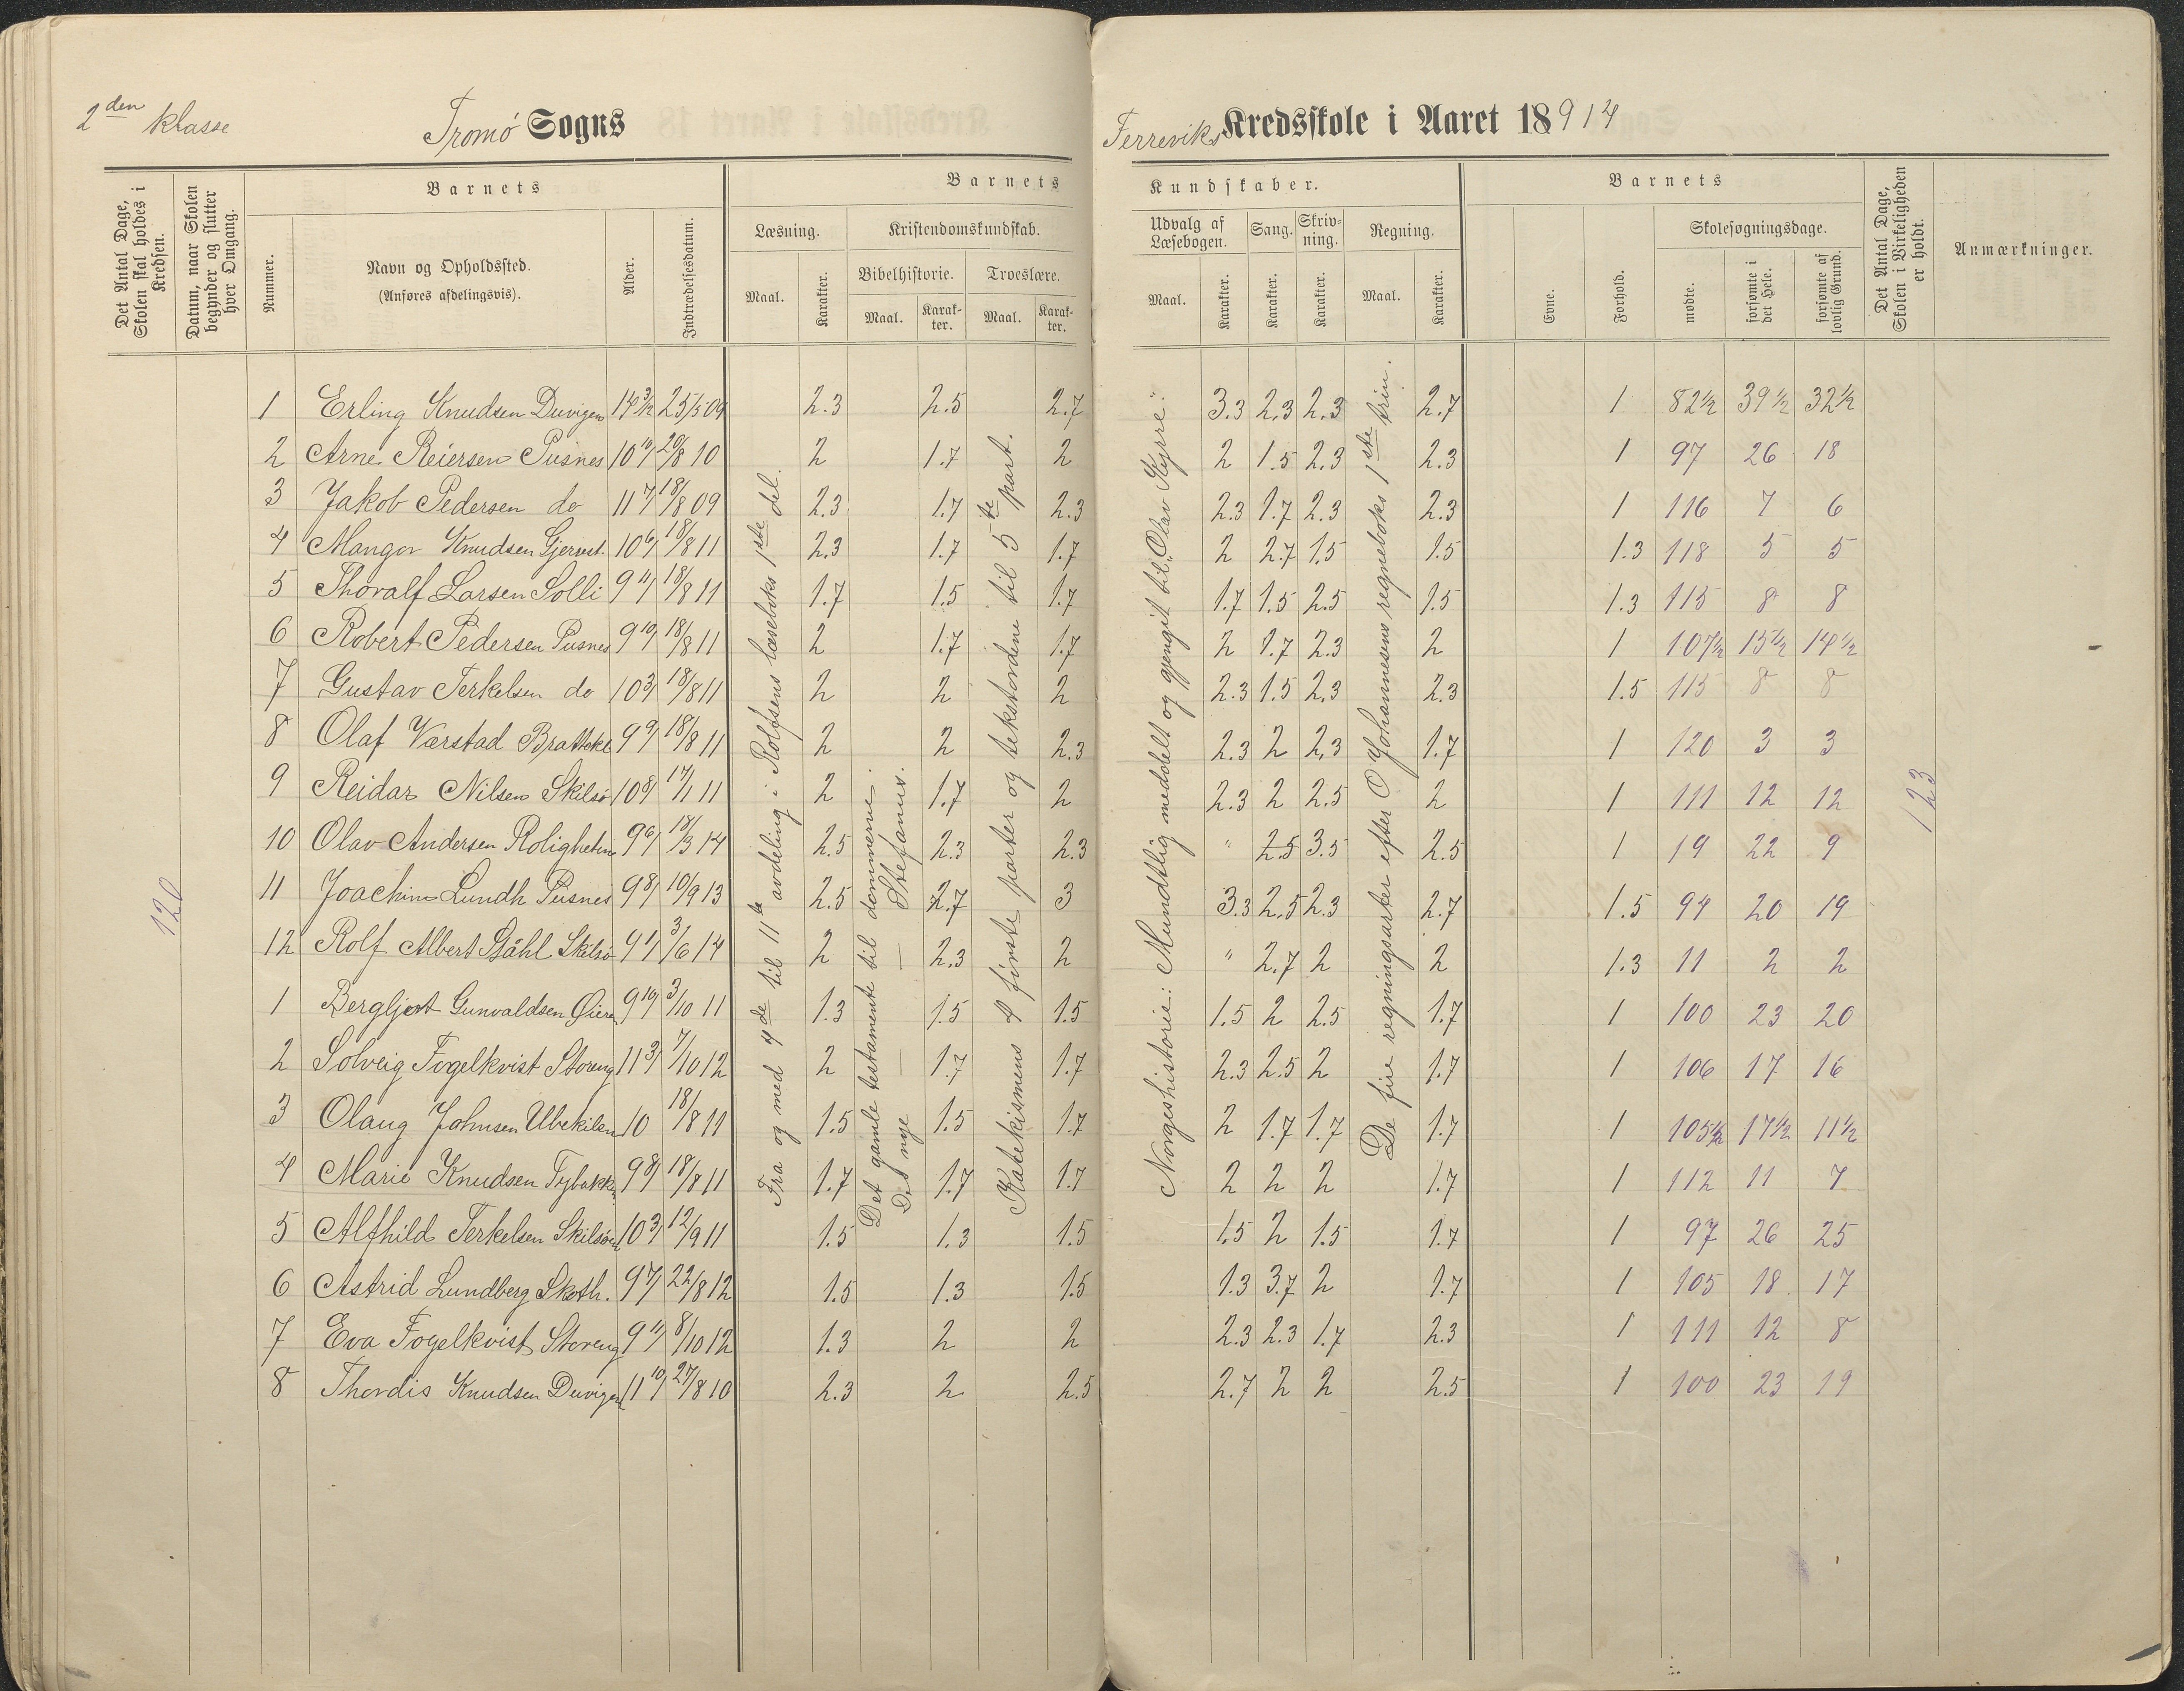 2den klasse
Tromö Sogns
Ferreviks Kredsskole i Aaret 18914
Det Antal Dage, Skolen skal holdes i Kredsen.
Datum, naar Skolen begynder og slutter hver Omgang.
Barnets
Nummer.
Navn og Opholdssted.
(Anføres afdelingsvis).
Alder.
Indtrædelsesdatum.
Barnets
Læsning.
Kristendomskundskab.
Maal.
Karakter.
Bibelhistorie.
Troeslære.
Maal.
Karakter.
Maal.
Karakter.
Kundskaber.
Udvalg af Læsebogen.
Sang.
Skrivning.
Regning.
Maal.
Karakter.
Karakter.
Karakter.
Maal.
Karakter.
Barnets
Evne.
Forhold.
Skolesøgningsdage.
mødte.
forsømte i det Hele.
forsømte af lovlig Grund.
Det Antal Dage, Skolen i Virkeligheden er holdt.
Anmærkninger.
1 Erling Knudsen Duvigen 14 3/12 25/5 09 2.3 2.5 2.7 3.3 2.3 2.3 2.7 1 82½ 39½ 32½
2 Arne Reiersen Pusnes 10 10/ 20/8 10 2 1.7 2 2 1.5 2.3 2.3 1 97 26 18
3 Jakob Pedersen do 11 7/ 18/8 09 2.3 1.7 2.3 2.3 1.7 2.3 2.3 1 116 7 6
4 Mangor Knudsen Gjervst. 10 6/ 18/8 11 2.3 1.7 1.7 2 2.7 1.5 1.5 1.3 118 5 5
5 Thoralf Larsen Solli 9 11/ 18/8 11 1.7 1.5 1.7 1.7 1.5 2.5 1.5 1.3 115 8 8
6 Robert Pedersen Pusnes 9 10/ 18/8 11 2 1.7 1.7 2 1.7 2.3 2 1 107½ 15½ 14½
7 Gustav Terkelsen do 10 3/ 18/8 11 2 2 2 2.3 1.5 2.3 2.3 1.5 115 8 8
8 Olaf Værstad Brattekl 9 9/ 18/8 11 2 2 2.3 2.3 2 2.3 1.7 1 120 3 3
9 Reidar Nilsen Skilsö 10 8/ 17/1 11 2 1.7 2 2.3 2 2.5 2 1 111 12 12
10 Olav Andersen Roligheten 9 6/ 18/3 14 2.5 2.3 2.3 " 2.5 3.5 2.5 1 19 22 9
11 Joachim Lundh Pusnes 9 8/ 10/9 13 2.5 2.7 3 3.3 2.5 2.3 2.7 1.5 94 20 19
12 Rolf Albert Ståhl Skilsö 9 1/ 3/6 14 2 2.3 2 " 2.7 2 2 1.3 11 2 2
1 Bergljot Gunvaldsen Øieren 9 10/ 3/10 11 1.3 1.5 1.5 1.5 2 2.5 1.7 1 100 23 20
2 Solveig Fogelkvist Storeng 11 3/ 7/10 12 2 1.7 1.7 2.3 2.5 2 1.7 1 106 17 16
3 Olaug Johnsen Ubekilen 10 18/8 11 1.5 1.5 1.7 2 1.7 1.7 1.7 1 105½ 17½ 11½
4 Marie Knudsen Tybakken 9 8/ 18/8 11 1.7 1.7 1.7 2 2 2 1.7 1 112 11 7
5 Alfhild Terkelsen Skilsöen 10 3/ 12/9 11 1.5 1.3 1.5 1.5 2 1.5 1.7 1 97 26 25
6 Astrid Lundberg Skoth. 9 7/ 22/8 12 1.5 1.3 1.5 1.3 3.7 2 1.7 1 105 18 17
7 Eva Fogelkvist Storeng 9 11/ 8/10 12 1.3 2 2 2.3 2.3 1.7 2.3 1 111 12 8
8 Thordis Knudsen Duvigen 11 10/ 27/8 10 2.3 2 2.5 2.7 2 2 2.5 1 100 23 19
120
Fra og med 4de til 11te avdeling i Rolfsens læseboks 1ste del.
Det gamle testamente til dommerne.
Det nye — — Stefanus.
Katekismens 4 første parter og tekstordene til 5te part.
Norgeshistorie: Mundtlig meddelt og gjengit til "Olav Kyrre".
De fire regningsarter efter O Johannesens regneboks 1ste trin.
123